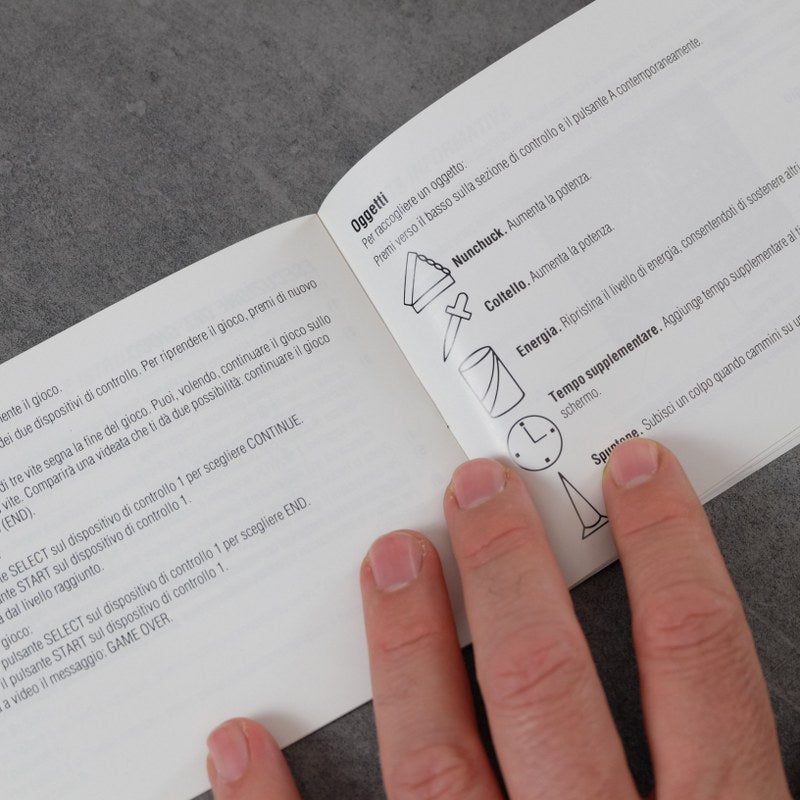 mente il gioco.
dei due dispositivi di controllo. Per riprendere il gioco, premi di nuovo
di tre vite segna la fine del gioco. Puoi, volendo, continuare il gioco sullo
vite. Comparirà una videata che ti dà due possibilità: continuare il gioco
(END).
SELECT sul dispositivo di controllo 1 per scegliere CONTINUE.
START sul dispositivo di controllo 1.
dal livello raggiunto.
gioco:
pulsante SELECT sul dispositivo di controllo 1 per scegliere END.
il pulsante START sul dispositivo di controllo 1.
a video il messaggio: GAME OVER.
Oggetti
Per raccogliere un oggetto:
Premi verso il basso sulla sezione di controllo e il pulsante A contemporaneamente.
Nunchuck. Aumenta la potenza.
Coltello. Aumenta la potenza.
Energia. Ripristina il livello di energia, consentendoti di sostenere altri
Tempo supplementare. Aggiunge tempo supplementare al
schermo.
Spuntone. Subisci un colpo quando cammini su